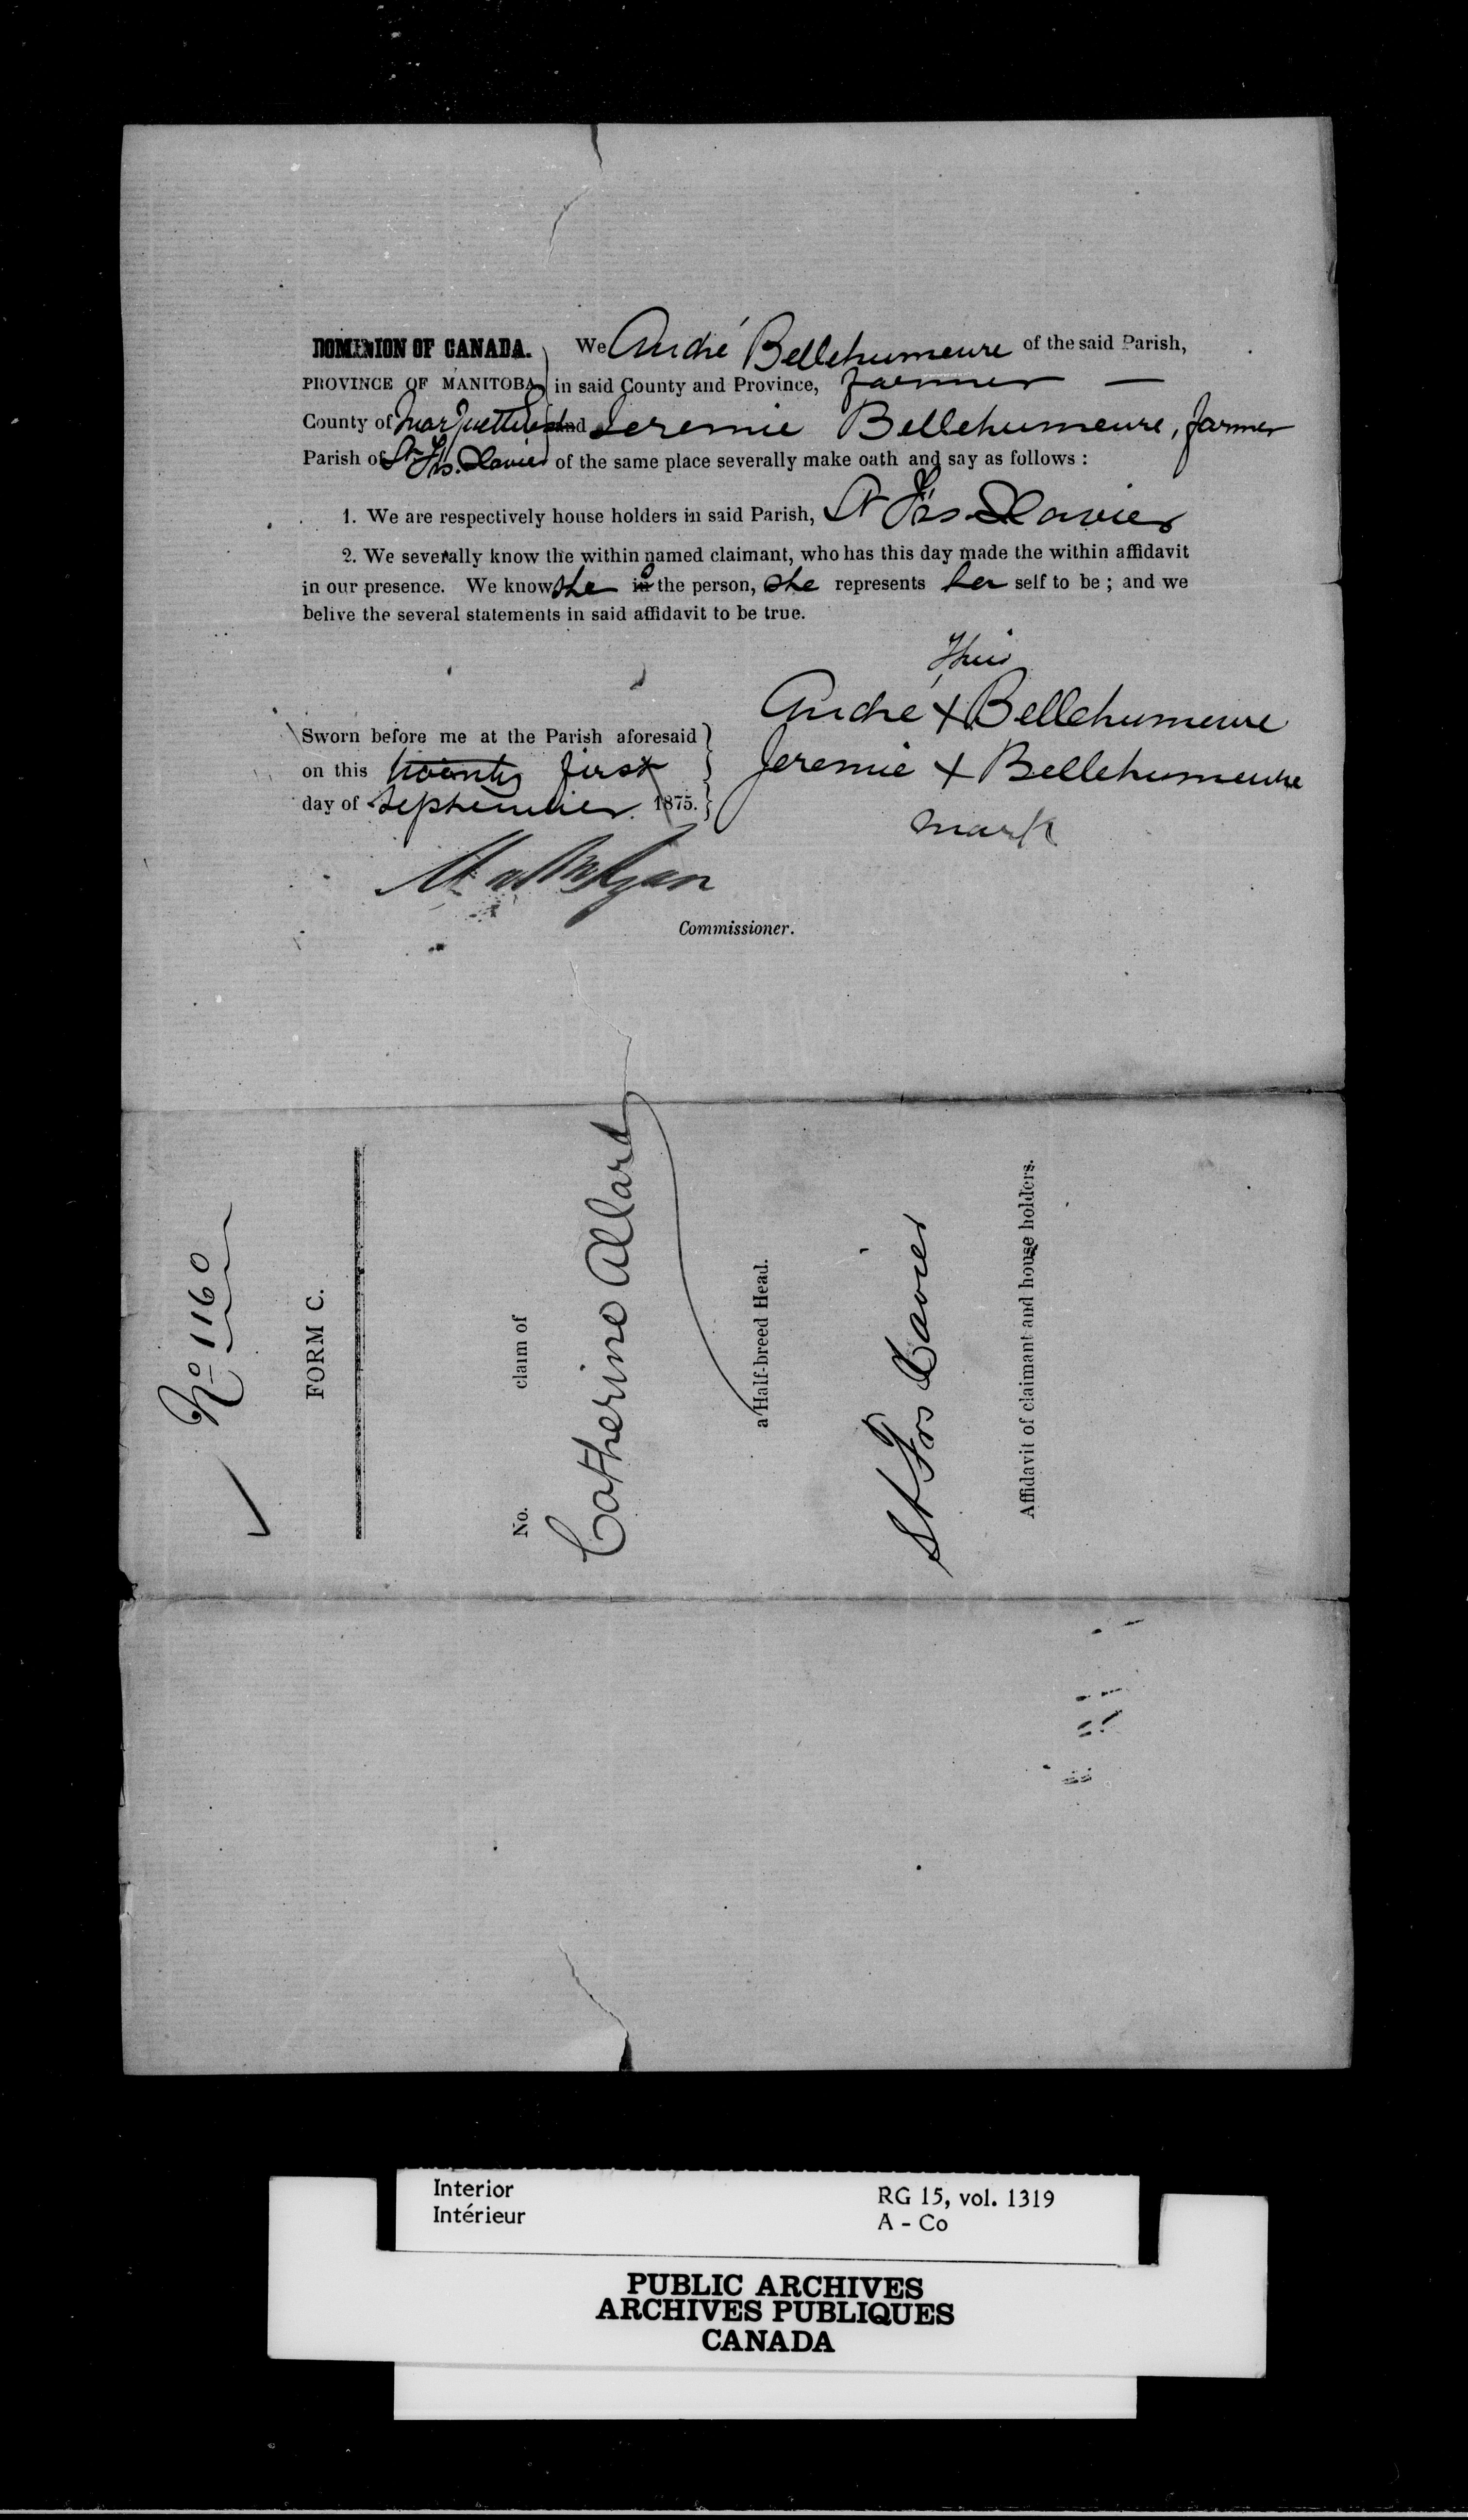 DOMINION OF CANADA. We André Bellehumeure of the said Parish,
PROVINCE OF MANITOBA, in said County and Province, farmer —
County of Marquette and Jeremie Bellehumeure, farmer
Parish of St Frs. Xavier of the same place severally make oath and say as follows :
1. We are respectively house holders in said Parish, St Frs Xavier
2. We severally know the within named claimant, who has this day made the within affidavit
in our presence. We know she is the person, she represents her self to be ; and we
belive the several statements in said affidavit to be true.
Their
André + Bellehumeure
Jeremie + Bellehumeure
mark
Sworn before me at the Parish aforesaid
on this twenty first
day of September 1875.
Commissioner.
No 1160
FORM C.
No. claim of
Catherine Allard
a Half-breed Head.
St Frs Xavier
Affidavit of claimant and house holders.
Interior
Intérieur
RG 15, vol. 1319
A - Co
PUBLIC ARCHIVES
ARCHIVES PUBLIQUES
CANADA